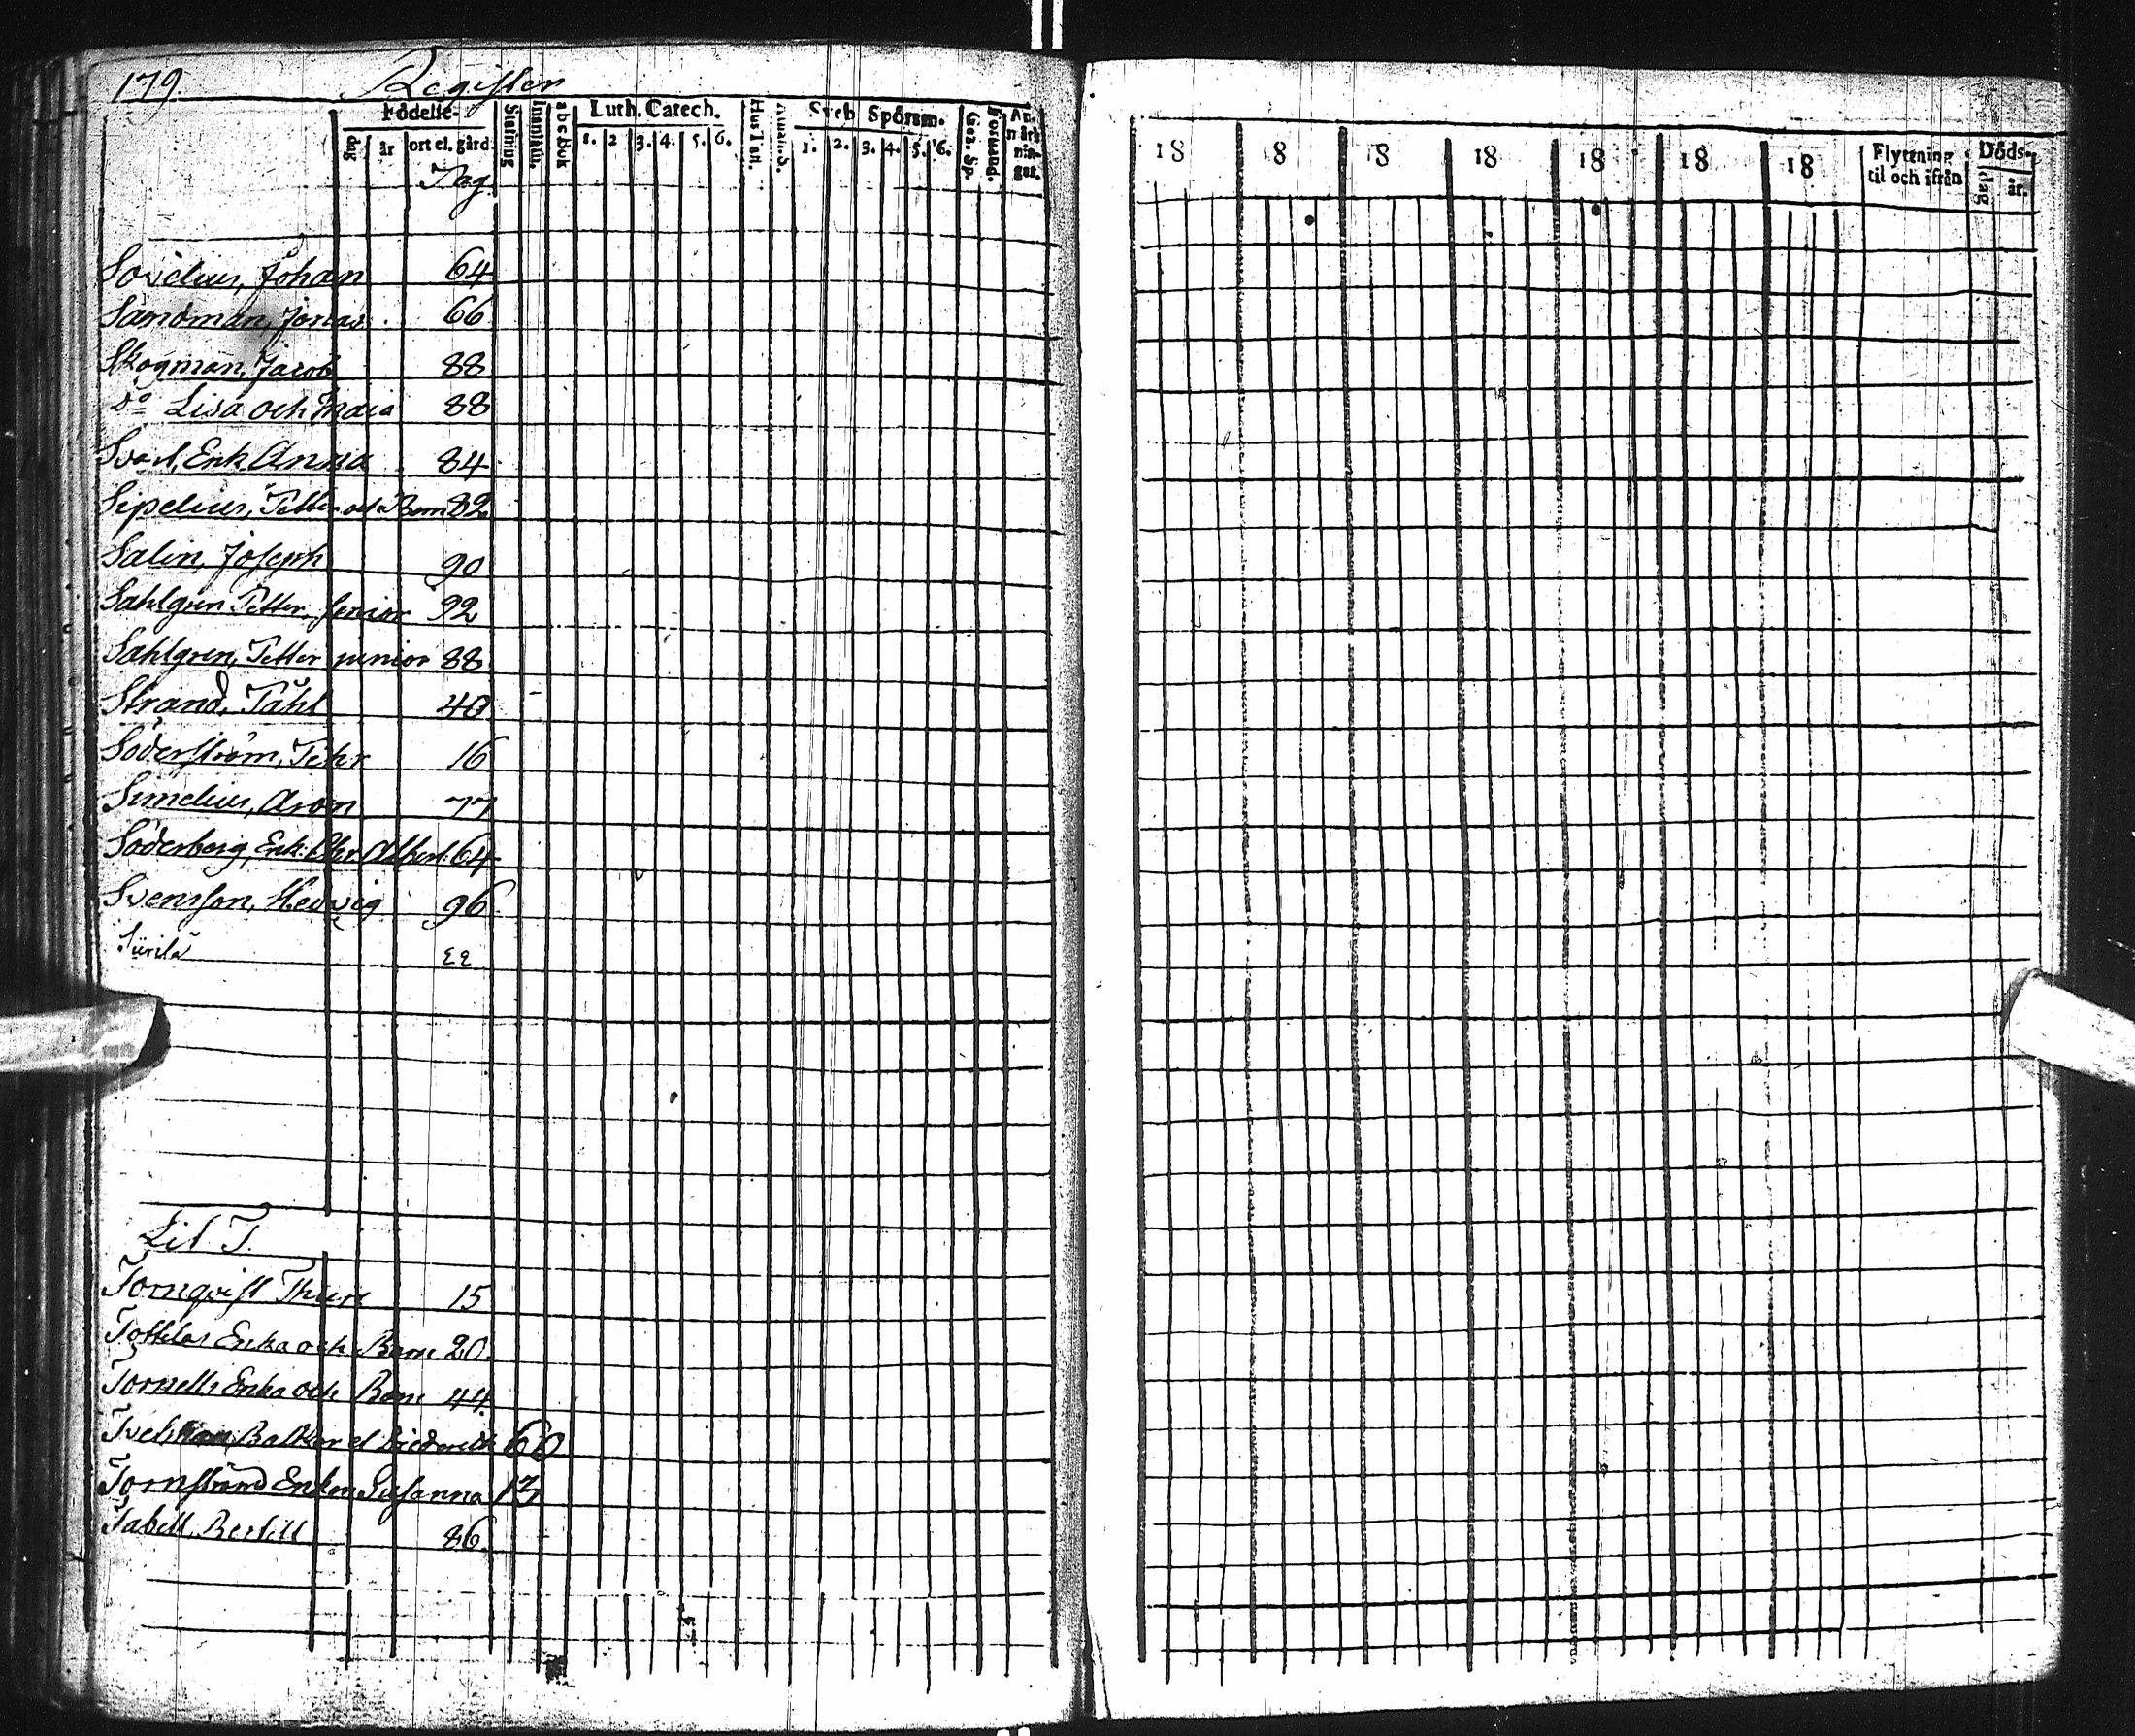 179 Register
Födelse-
dag
år
ort el. gård.
Stafning
Innanläs.
abcBok
Luth. Catech.
1. 2 3. 4. 5. 6.
Hus Tafl.
Sveb Spörsm.
1. 2. 3. 4. 5. 6.
Gez. Sp.
Förstånd.
An-
märk
nin-
gar.
Pag.
Sovelius, Johan 64
Sandman, Jonas 66
Skogman, Jacob 88
Do Lisa och Maia 88
Enk. Anna 84
Sipelius, Petter och Barn 82
Salin, Joseph 90
Sahlgren Petter, senior 92
Sahlgren, Petter junior 88
Strand, Påhl 40
Söderström, Pehr 16
Simelius, Aron 77
Söderberg, Enk. Chr Albert. 64
Svensson, Hedvig 96
Siirilä 22
Lit T.
Tornqvist Thure 15
Enka och Barn 20.
Tornells Enka och Barn 44
Balter et Diedrich 60
Enkan Susanna 13
Tabell Bertill 86
18 18 18 18 18 18 18
Flyttning
til och ifrån
Döds-
dag
år.